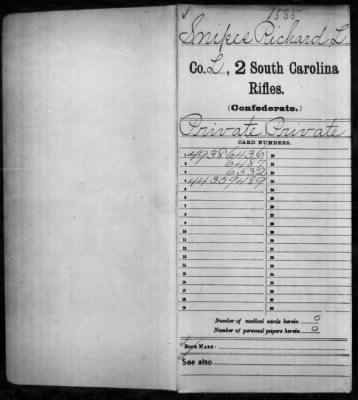 1535
Snipes Richard L.
Co. L, 2 South Carolina
Rifles.
(Confederate.)
Private Private
CARD NUMBERS.
1 49386436
2 6487
3 6532
4 44359489
5
6
7
8
9
10
11
12
13
14
15
16
17
18
19
20
21
22
23
24
25
26
27
28
29
30
31
32
33
34
35
36
Number of medical cards herein 0
Number of personal papers herein 0
BOOK MARK:
See also